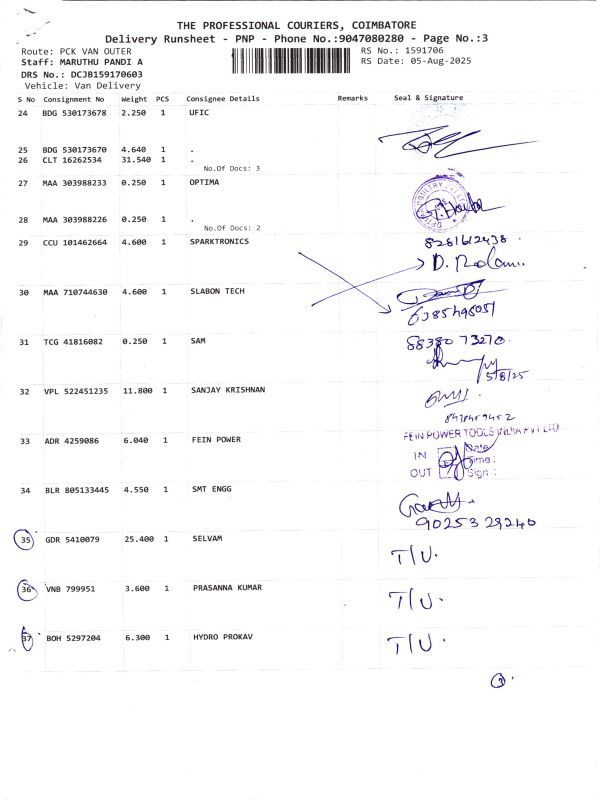 THE PROFESSIONAL COURIERS, COIMBATORE
Delivery Runsheet - PNP - Phone No.:9047080280 - Page No.:3
Route: PCK VAN OUTER RS No.: 1591706
Staff: MARUTHU PANDI A RS Date: 05-Aug-2025
DRS No.: DCJB159170603
Vehicle: Van Delivery
S No Consignment No Weight PCS Consignee Details Remarks Seal & Signature
24 BDG 530173678 2.250 1 UFIC
25 BDG 530173670 4.640 1 .
26 CLT 16262534 31.540 1 .
No.Of Docs: 3
27 MAA 303988233 0.250 1 OPTIMA
28 MAA 303988226 0.250 1 .
No.Of Docs: 2
29 CCU 101462664 4.600 1 SPARKTRONICS
8281612438
30 MAA 710744630 4.600 1 SLABON TECH
6385496051
31 TCG 41816082 0.250 1 SAM 88380 73270
5/8/25
32 VPL 522451235 11.800 1 SANJAY KRISHNAN
8428459452
33 ADR 4259086 6.040 1 FEIN POWER FEIN POWER TOOLS INDIA PVT LTD
IN Date
OUT Time:
Sign:
34 BLR 805133445 4.550 1 SMT ENGG
90253 29240
35 GDR 5410079 25.400 1 SELVAM T/U.
36 VNB 799951 3.600 1 PRASANNA KUMAR T/U.
37 BOH 5297204 6.300 1 HYDRO PROKAV T/U.
3